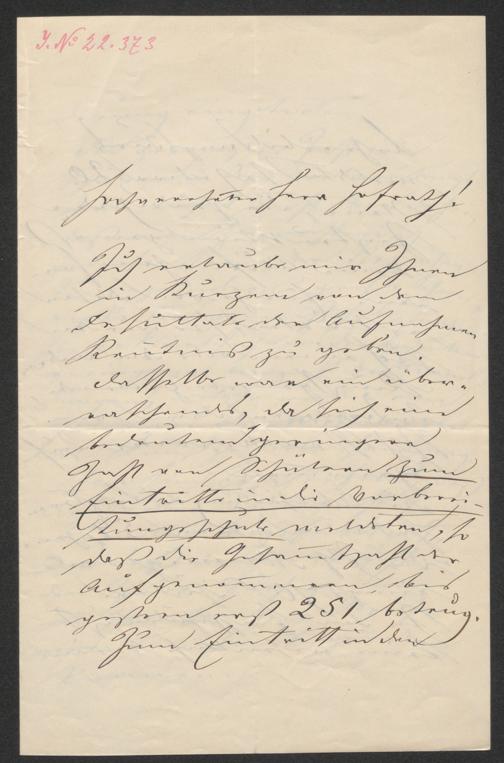 J. No 22.373
Hochverehrter Herr Hofrath!
Ich erlaube mir Ihnen
in Kurzem von dem
Resultate der Aufnahmen
Kenntniß zu geben.
Dasselbe war ein über-
raschendes, da sich eine
bedeutend geringere
Zahl von Schülern zum
Eintritte in die Vorberei-
tungsschule meldeten, so
daß die Gesammtzahl der
Aufgenommenen bis
gestern erst 251 betrug.
Zum Eintritt in den